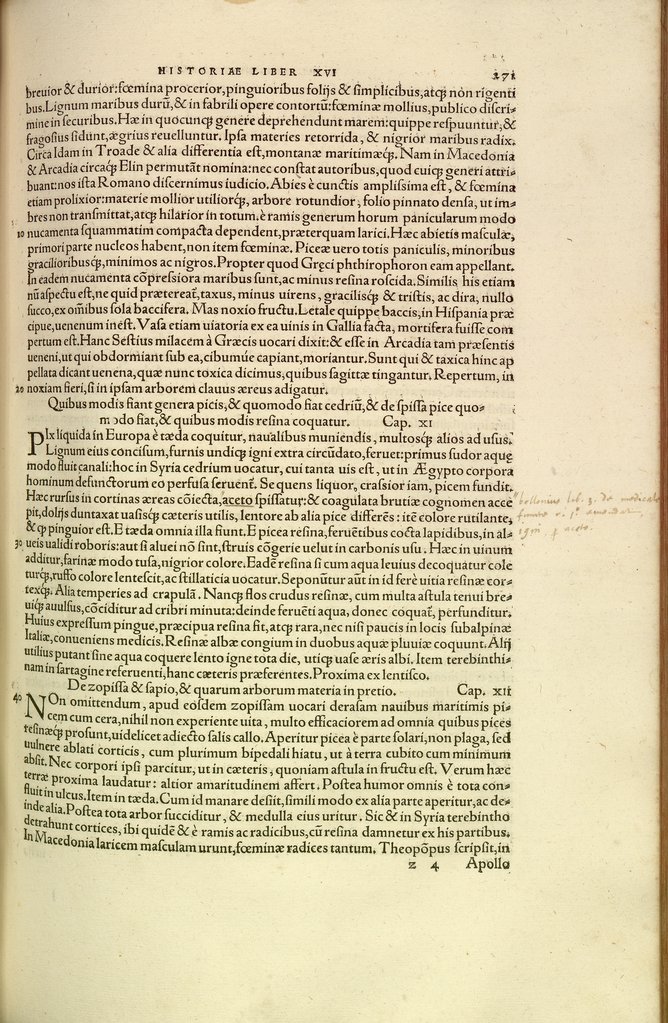 HISTORIAE LIBER XVI
271
breuior & durior: fœmina procerior, pinguioribus folijs & simplicibus, atq; non rigenti
bus. Lignum maribus durũ, & in fabrili opere contortũ: fœminæ mollius, publico discri-
mine in securibus. Hæ in quocunq; genere deprehendunt marem: quippe respuuntur, &
fragosius sidunt, ægrius reuelluntur. Ipsa materies retorrida, & nigrior maribus radix.
Circa Idam in Troade & alia differentia est, montanæ maritimæq;. Nam in Macedonia
& Arcadia circaq; Elin permutãt nomina: nec constat autoribus, quod cuiq; generi attri-
buant: nos ista Romano discernimus iudicio. Abies è cunctis amplissima est, & fœmina
etiam prolixior: materie mollior utiliorq;, arbore rotundior, folio pinnato densa, ut im-
bres non transmittat, atq; hilarior in totum. è ramis generum horum panicularum modo
10 nucamenta squammatim compacta dependent, præterquam larici. Hæc abietis masculæ,
primori parte nucleos habent, non item fœminæ. Piceæ uero totis paniculis, minoribus
gracilioribusq;, minimos ac nigros. Propter quod Gręci phthirophoron eam appellant.
In eadem nucamenta cõpressiora maribus sunt, ac minus resina roscida. Similis his etiam
nũ aspectu est, ne quid prætereat̃, taxus, minus uirens, gracilisq; & tristis, ac dira, nullo
succo, ex oĩbus sola baccifera. Mas noxio fructu. Letale quippe baccis, in Hispania præ
cipue, uenenum inest. Vasa etiam uiatoria ex ea uinis in Gallia facta, mortifera fuisse com
pertum est. Hanc Sestius milacem à Græcis uocari dixit: & esse in Arcadia tam præsentis
ueneni, ut qui obdormiant sub ea, cibumúe capiant, moriantur. Sunt qui & taxica hinc ap
pellata dicant uenena, quæ nunc toxica dicimus, quibus sagittæ tingantur. Repertum, in
20 noxiam fieri, si in ipsam arborem clauus æreus adigatur.
Quibus modis fiant genera picis, & quomodo fiat cedriũ, & de spissa pice quo-
modo fiat, & quibus modis resina coquatur. Cap. XI
PIx liquida in Europa è tæda coquitur, naualibus muniendis, multosq; alios ad usus.
Lignum eius concisum, furnis undiq; igni extra circũdato, feruet: primus sudor aquę
modo fluit canali: hoc in Syria cedrium uocatur, cui tanta uis est, ut in Ægypto corpora
hominum defunctorum eo perfusa seruent̃. Sequens liquor, crassior iam, picem fundit.
Hæc rursus in cortinas æreas cõiecta, aceto spissatur: & coagulata brutiæ cognomen acce
pit, dolijs duntaxat uasisq; cæteris utilis, lentore ab alia pice differẽs: itẽ colore rutilante,
& q̃ pinguior est. E tæda omnia illa fiunt. E picea resina, feruẽtibus cocta lapidibus, in al-
30 ueis ualidi roboris: aut si aluei nõ sint, struis cõgerie uelut in carbonis usu. Hæc in uinum
additur, farinæ modo tusa, nigrior colore. Eadẽ resina si cum aqua leuius decoquatur cole
turq;, ruffo colore lentescit, ac stillaticia uocatur. Seponũtur aũt in id ferè uitia resinæ cor-
texq;. Alia temperies ad crapulã. Nanq; flos crudus resinæ, cum multa astula tenui bre-
uiq; auulsus, cõciditur ad cribri minuta: deinde feruẽti aqua, donec coquat̃, perfunditur.
Huius expressum pingue, præcipua resina fit, atq; rara, nec nisi paucis in locis subalpinæ
Italiæ, conueniens medicis. Resinæ albæ congium in duobus aquæ pluuiæ coquunt. Alij
utilius putant sine aqua coquere lento igne tota die, utiq; uase æris albi. Item terebinthi-
nam in sartagine referuenti, hanc cæteris præferentes. Proxima ex lentisco.
De zopissa & sapio, & quarum arborum materia in pretio. Cap. XII
40
NOn omittendum, apud eosdem zopissam uocari derasam nauibus maritimis pi-
cem cum cera, nihil non experiente uita, multo efficaciorem ad omnia quibus pices
resinæq; prosunt, uidelicet adiecto salis callo. Aperitur picea è parte solari, non plaga, sed
uulnere ablati corticis, cum plurimum bipedali hiatu, ut à terra cubito cum minimum
absit. Nec corpori ipsi parcitur, ut in cæteris, quoniam astula in fructu est. Verum hæc
terræ proxima laudatur: altior amaritudinem affert. Postea humor omnis è tota con-
fluit in ulcus. Item in tæda. Cum id manare desiit, simili modo ex alia parte aperitur, ac de-
inde alia. Postea tota arbor succiditur, & medulla eius uritur. Sic & in Syria terebintho
detrahunt cortices, ibi quidẽ & è ramis ac radicibus, cũ resina damnetur ex his partibus.
In Macedonia laricem masculam urunt, fœminæ radices tantum. Theopõpus scripsit, in
z 4 Apollo
bellonius lib. 3. de medicato